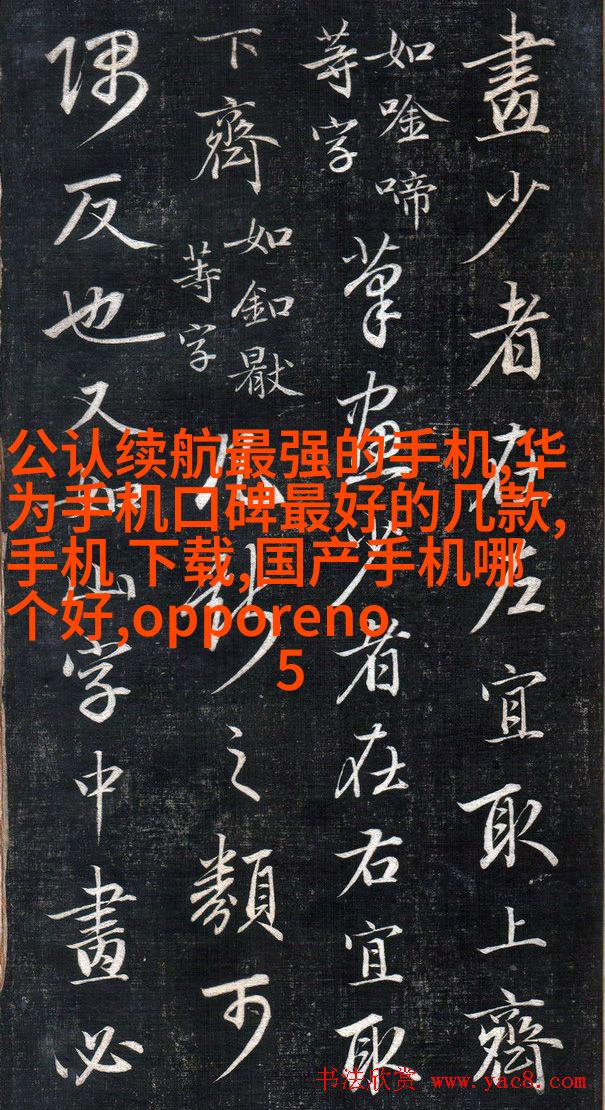 畫少者在左宜取上齊
如唫啼
等字
筆畫少者在右宜取
下齊
如釦
等字
之類可
隅反也又如山字中畫必
公认续航最强的手机,华
为手机口碑最好的几款,
手机 下载,国产手机哪
个好,opporeno
5
书法欣赏 www.yac8.com